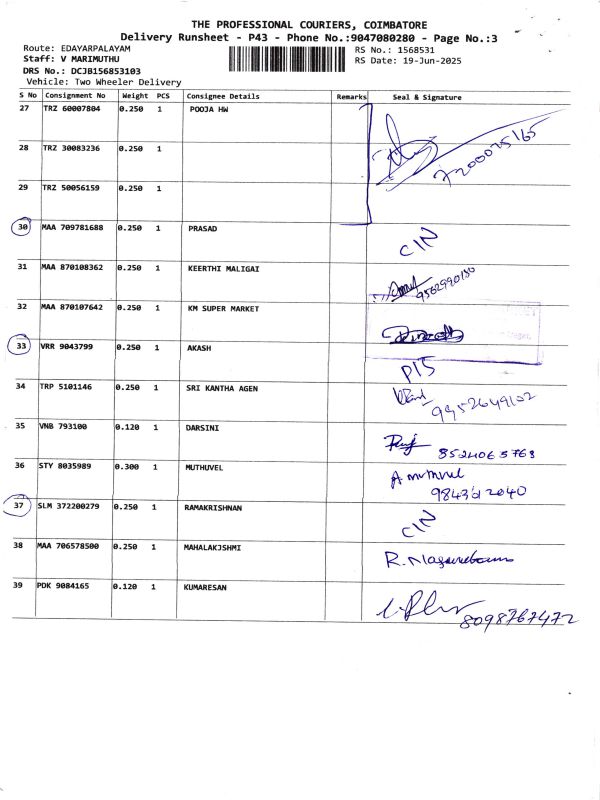 THE PROFESSIONAL COURIERS, COIMBATORE
Delivery Runsheet - P43 - Phone No.:9047080280 - Page No.:3
Route: EDAYARPALAYAM
Staff: V MARIMUTHU
DRS No.: DCJB156853103
Vehicle: Two Wheeler Delivery
RS No.: 1568531
RS Date: 19-Jun-2025
S No Consignment No Weight PCS Consignee Details Remarks Seal & Signature
27 TRZ 60007804 0.250 1 POOJA HW
28 TRZ 30083236 0.250 1 7200075165
29 TRZ 50056159 0.250 1
30 MAA 709781688 0.250 1 PRASAD CIN
31 MAA 870108362 0.250 1 KEERTHI MALIGAI
32 MAA 870107642 0.250 1 KM SUPER MARKET
33 VRR 9043799 0.250 1 AKASH
34 TRP 5101146 0.250 1 SRI KANTHA AGEN 9952649102
35 VNB 793100 0.120 1 DARSINI 8524065768
36 STY 8035989 0.300 1 MUTHUVEL
9843612040
37 SLM 372200279 0.250 1 RAMAKRISHNAN CIN
38 MAA 706578500 0.250 1 MAHALAKJSHMI
39 PDK 9084165 0.120 1 KUMARESAN 8098767472